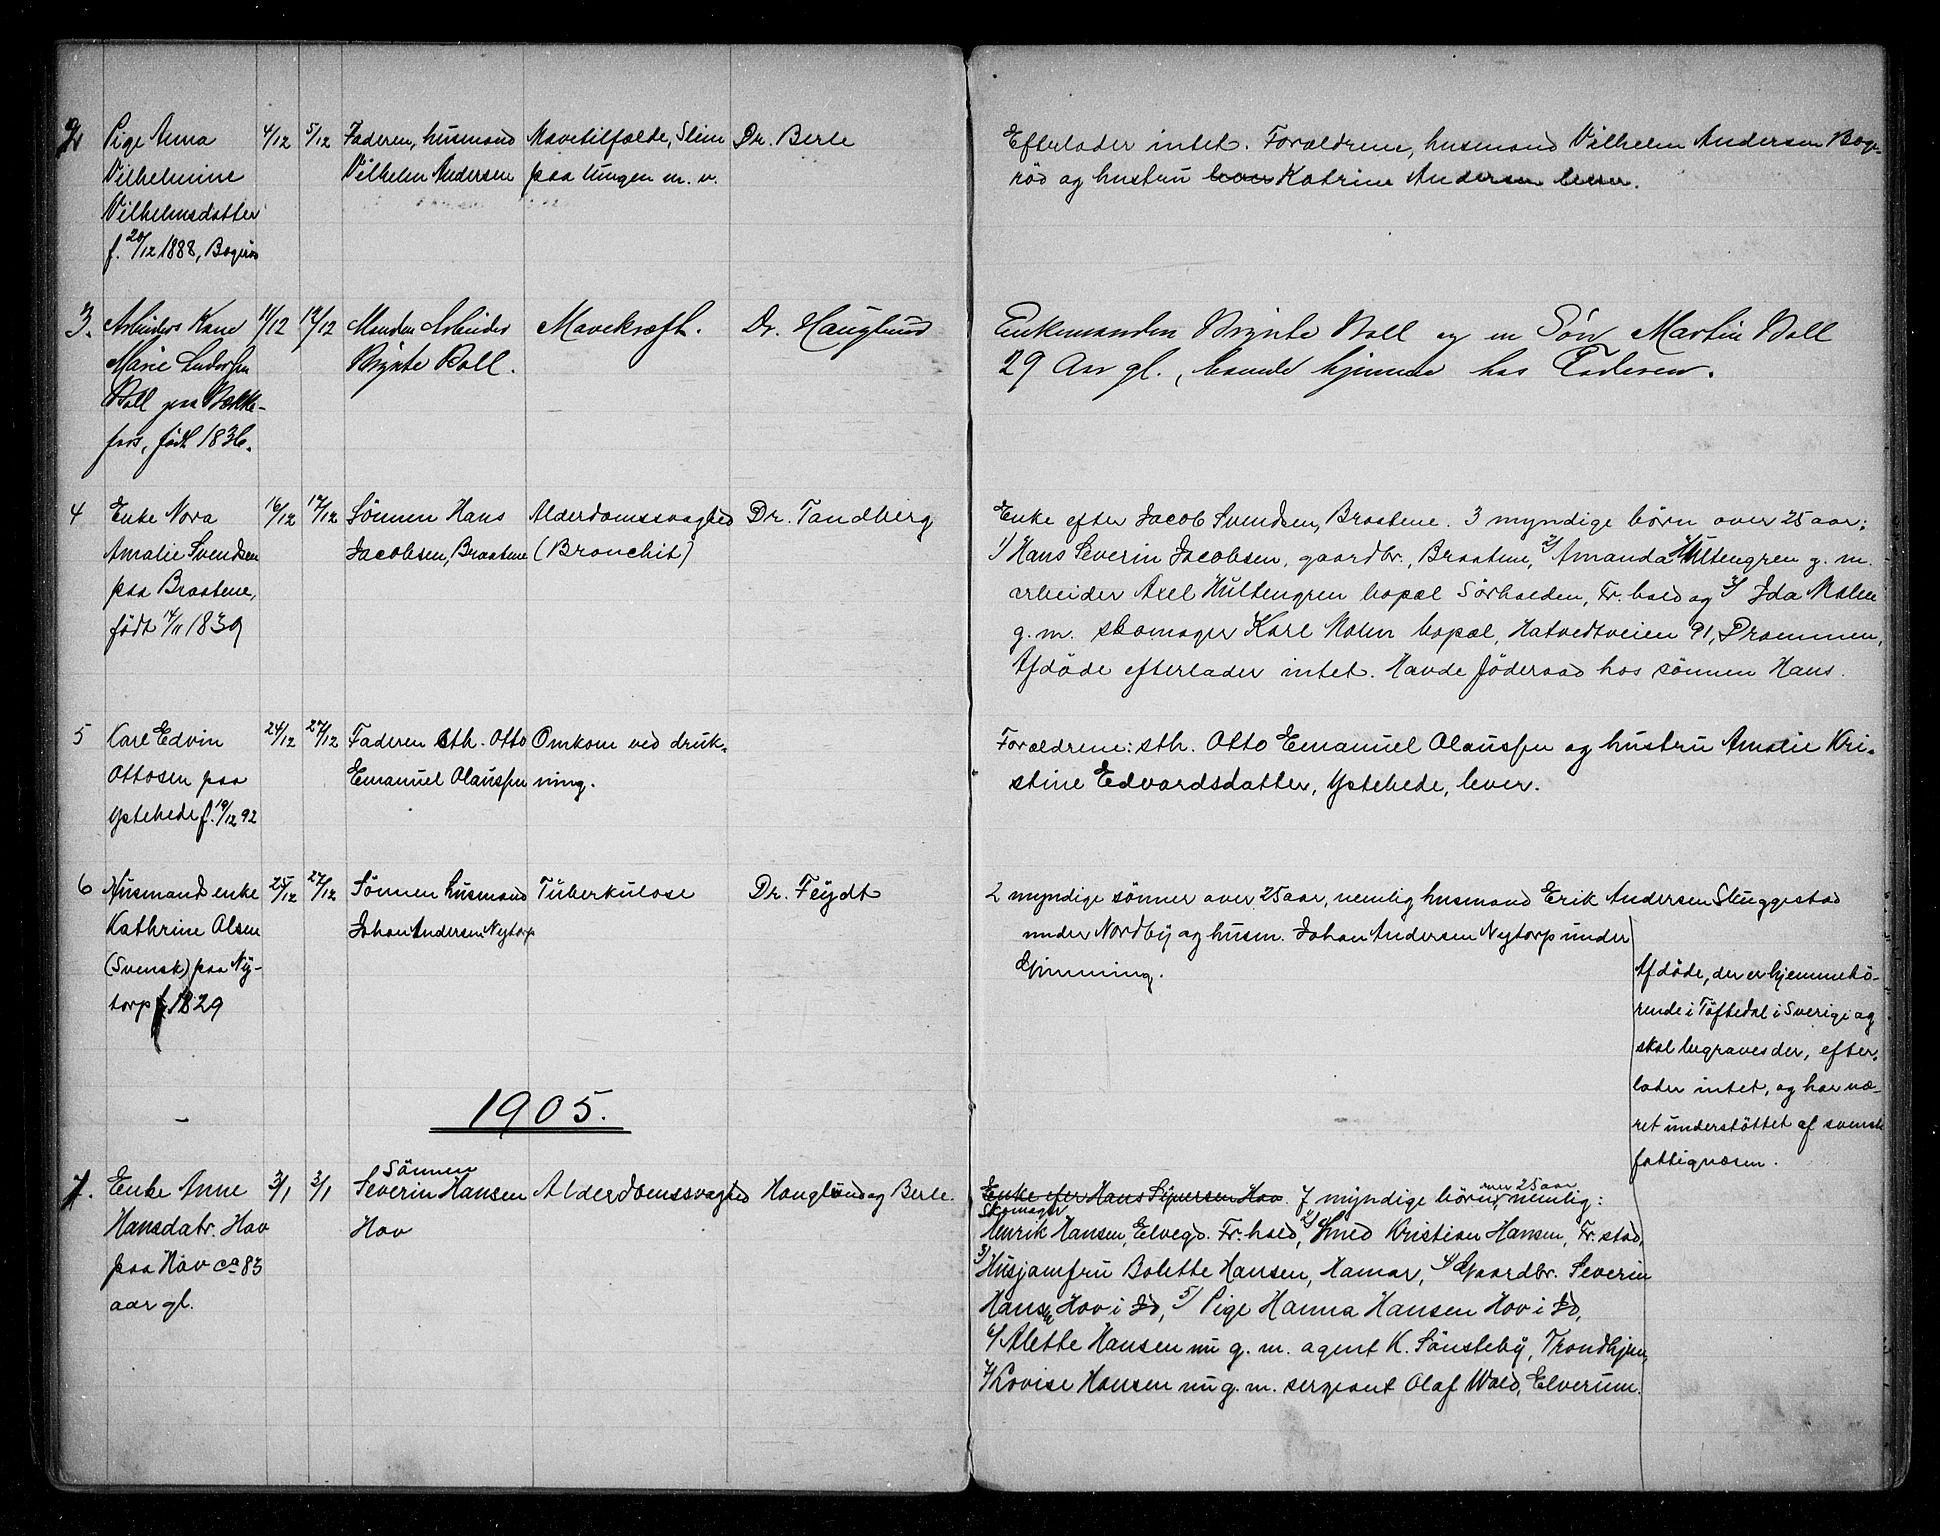 2 Pige Anna 4/12 5/12 Faderen, husmand Mavetilfælde, Slim Dr. Berle
Vilhelmine Vilhelm Andersen paa lungen m. v.
Vilhelmsdatter
f. 20/12 1888, Bogerød
Efterlader intet. Forældrene, husmand Vilhelm Andersen Boge-
rød og hustru Katrine Andersen lever.
3. Arbeiders Kone 11/12 12/12 Manden Arbeider Mavekræft. Dr. Hauglund
Marie Andersen Brynte Boll.
Boll paa Bække-
fos, født 1836.
Enkemanden Brynte Boll og en Søn Martin Boll
29 Aar gl., boende hjemme hos Faderen.
4 Enke Nora 16/12 17/12 Sønnen Hans Alderdomssvaghed Dr. Tandberg
Amalie Svendsen Jacobsen, Braatene (Bronchit)
paa Braatene,
født 14/11 1839
Enke efter Jacob Svendsen, Braatene. 3 myndige børn over 25 aar:
1) Hans Severin Jacobsen, gaardbr., Braatene, 2) Amanda Hultengren g. m.
arbeider Axel Hultengren bopæl Sørhalden, Fr. hald og 3) Ida Malm
g. m. skomager Karl Malm bopæl, Hatvedtveien 91, Drammen,
Afdøde efterlader intet. Havde føderaad hos sønnen Hans.
5 Karl Edvin 24/12 27/12 Faderen sth. Otto Omkom ved druk-
Ottosen paa Emanuel Olaussen ning.
Ystehede f. 19/12 92
Forældrene: sth. Otto Emanuel Olaussen og hustru Amalie Kri-
stine Edvardsdatter, Ystehede, lever.
6 Husmandsenke 25/12 27/12 Sønnen husmand Tuberkulose Dr. Feydt
Kathrine Olsen Johan Andersen Nytorp
(Svensk) paa Ny-
torp f. 1829
2 myndige sønner over 25 aar, nemlig husmand Erik Andersen Stuggestad
under Nordby og husm. Johan Andersen Nytorp under
Gimming.
Afdøde, der er hjemmehø-
rende i Töftedal i Sverige og
skal begraves der, efter-
lader intet, og har væ-
ret understøttet af svensk
fattigvæsen.
1905.
7. Enke Anne 3/1 3/1 Sønnen Severin Hansen Alderdomssvaghed Hauglund og Berle.
Hansdatr. Hov Hov
paa Hov ca 83
aar gl.
Enke efter Hans Syversen Hov. 7 myndige børn, over 25 aar nemlig:
Skomager
Henrik Hansen, Elvegd. Fr. hald, 2) Smed Kristian Hansen, Fr. stad,
3) Husjomfru Bolette Hansen, Hamar, 4) Gaardbr. Severin
Hansen Hov i Id, 5) Pige Hanna Hansen Hov i Id,
6) Alette Hansen nu g. m. agent K. Sønsteby, Trondhjem,
7) Lovise Hansen nu g. m. sergeant Olaf Wold, Elverum.